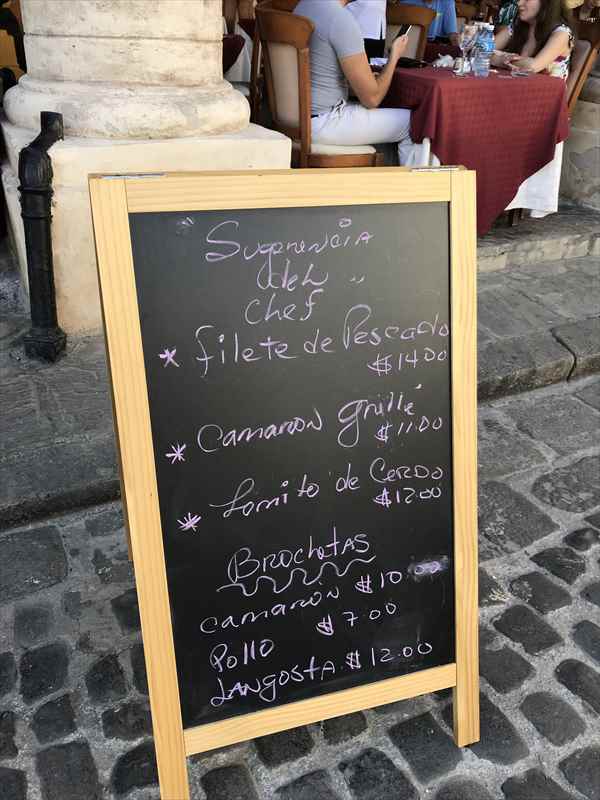 Sugerencia
del
Chef
* Filete de Pescado
$14.00
* Camaron grillé
$11.00
* Lomito de Cerdo
$12.00
Brochetas
Camaron $10.00
Pollo $7.00
Langosta $12.00